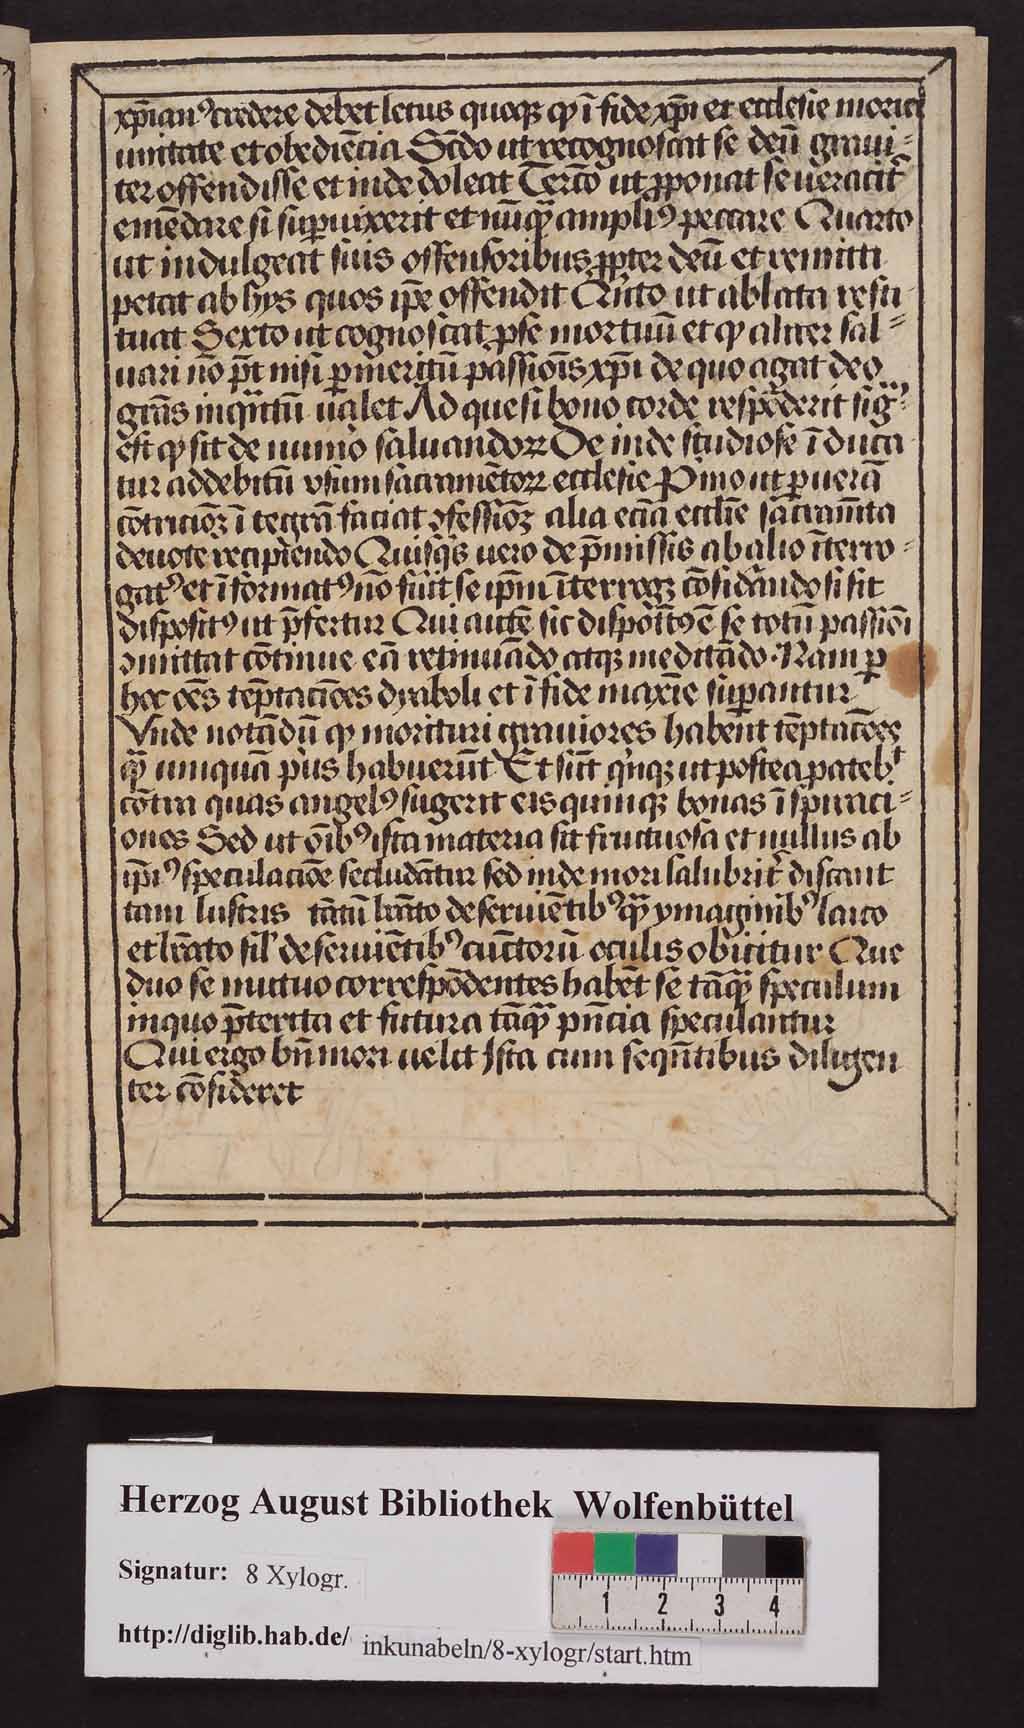 xp̄ian⁹ credere debet letus quoqꝫ ꝙ ī fide xp̄i et ecclesie morit᷑
unitate et obediēcia Scd̄o ut recognoscat se deū graui⸗
ter offendisse et inde doleat Terc̄o ut ꝓponat se ueracit᷑
emēdare si suꝑuixerit et nūqᷓ ampli⁹ peccare Quarto
ut indulgeat suis offensoribus ꝓpter deū et remitti
petat ab hys quos ip̄e offendit Qͥnto ut ablata resti
tuat Sexto ut cognoscat ꝓ se mortuū et ꝙ aliter sal⸗
uari nō p̄t nisi ꝑ meritū passiōis xp̄i de quo agat deo
grās inqᷓntū ualet Ad que si bono corde respōderit sig᷑
est ꝙ sit de numͦ saluandoꝝ De inde studiose īduca
tur ad debitū vsum sacramētoꝝ ecclesie Pͥmo ut ꝑ uerā
cōtricioꝫ ītegrā faciat ꝯfessioꝫ alia ecīa eccīe sacramēta
deuote recipiendo Quisqͥs uero de p̄missis ab alio īterro⸗
gat⁹ et īformat⁹ nō fūit se ip̄m īterrogꝫ cōsidᷓando si sit
disposit⁹ ut p̄fertur Qui autē sic disposit⁹ ē se totū passiōi
ꝯmittat cōtinue eā retinuādo atqꝫ meditādo Nam ꝑ
hoc oēs tēptaciōes dyaboli et ī fide maxīe suꝑantur
Vnde notādū ꝙ morituri grauiores habent tēptac̄oēs
qᷓ unquā pͥus habuerūt Et sūt qͥnqꝫ ut postea pateb᷑t
cōtra quas angel⁹ sugerit eis quinqꝫ bonas īspiraci⸗
ones Sed ut oīb⁹ ista materia sit fructuosa et nullus ab
ip̄i⁹ speculaciōe secludātur sed inde mori salubrit᷑ discant
tam lustris tātū lrāto deseruiētib⁹ qᷓ ymaginib⁹ laico
et lrāto sil᷑ deseruiētib⁹ cūctorū oculis obicitur Que
duo se mutuo correspōdentes habēt se tāqᷓ speculum
in quo p̄terita et futura tāqᷓ pn̄cia speculantur
Qui ergo bn̄ mori uelit Ista cum sequētibus diligen
ter cōsideret
Herzog August Bibliothek Wolfenbüttel
Signatur: 8 Xylogr.
1 2 3 4
http://diglib.hab.de/ inkunabeln/8-xylogr/start.htm